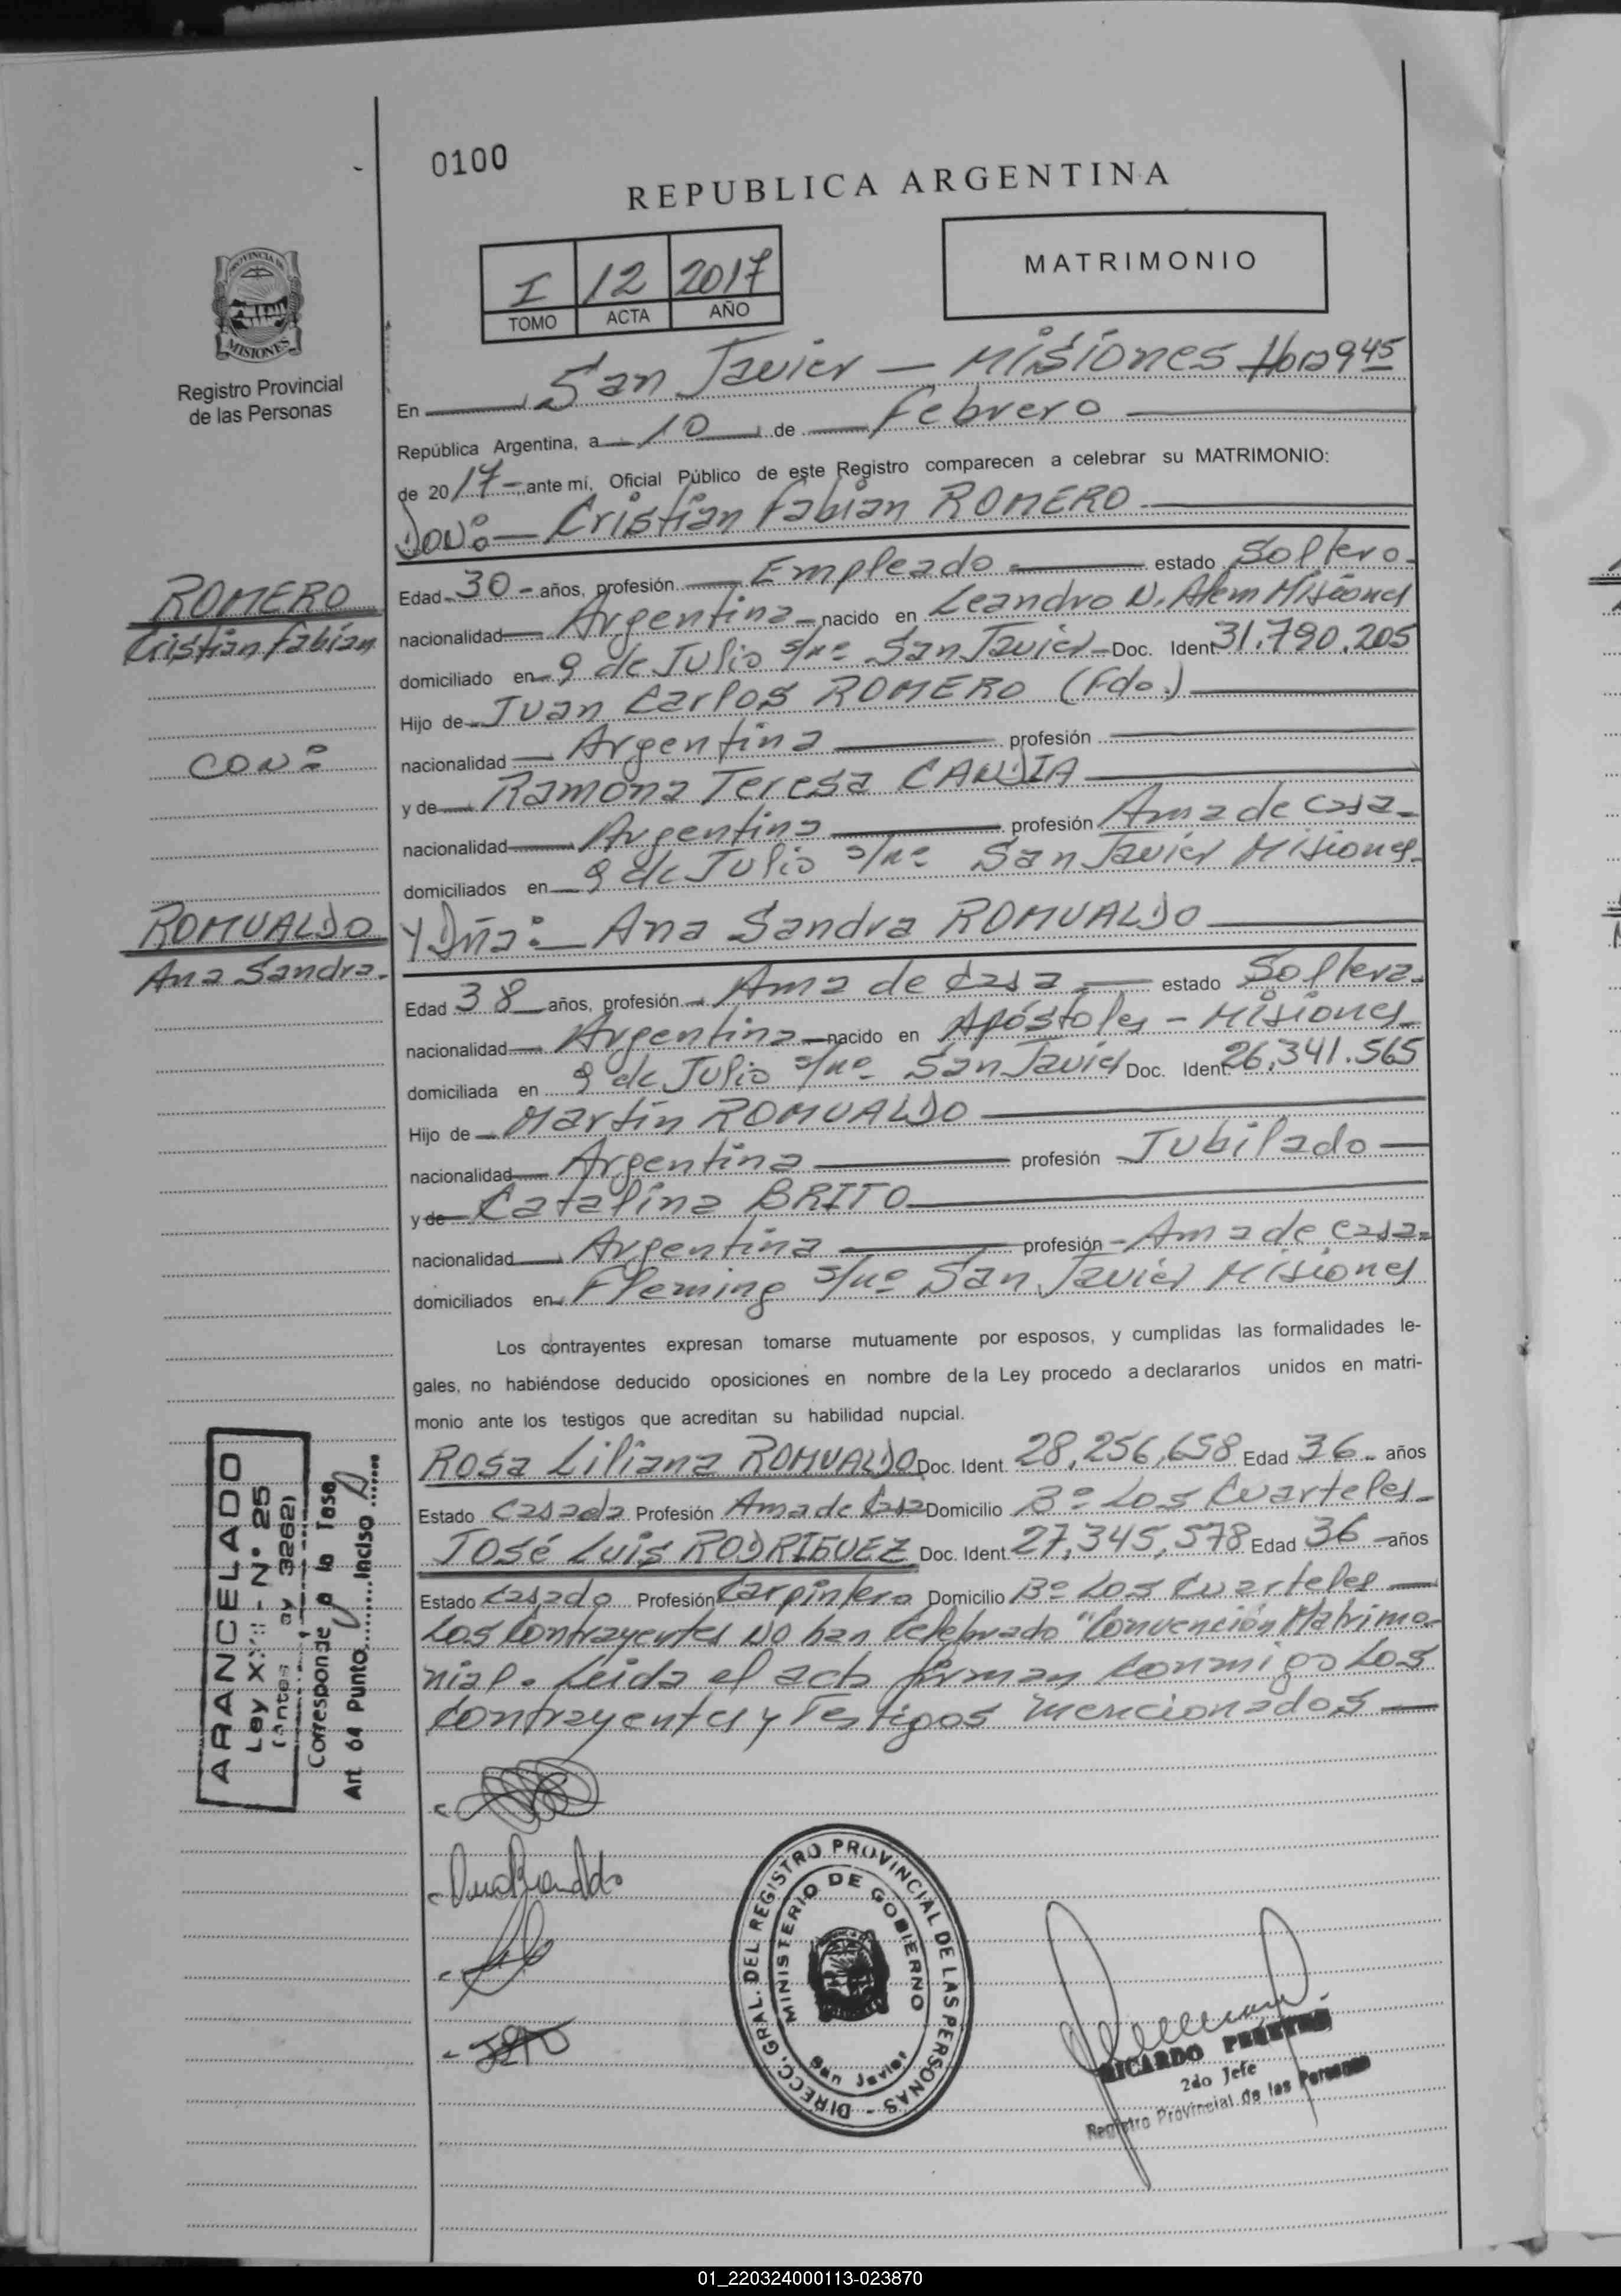 0100
REPUBLICA ARGENTINA
I 12 2017
TOMO ACTA AÑO
MATRIMONIO
PROVINCIA DE
MISIONES
Registro Provincial
de las Personas
En San Javier - Misiones Hora 9 45
República Argentina, a 10 de Febrero
de 2017 - ante mí, Oficial Público de este Registro comparecen a celebrar su MATRIMONIO:
DON: - Cristian Fabian ROMERO
ROMERO
Cristian Fabian
CON:
ROMUALDO
Ana Sandra.
Edad 30 - años, profesión Empleado estado Soltero -
nacionalidad Argentina - nacido en Leandro N. Alem Misiones
domiciliado en 9 de Julio s/nº San Javier - Doc. Ident 31.790.205
Hijo de Juan Carlos ROMERO (Fdo.)
nacionalidad Argentina profesión
y de Ramona Teresa CANDIA
nacionalidad Argentina profesión Ama de casa -
domiciliados en 9 de Julio s/nº San Javier Misiones -
Y Dña: - Ana Sandra ROMUALDO
Edad 38 años, profesión Ama de casa - estado Soltera -
nacionalidad Argentina - nacido en Apóstoles - Misiones
domiciliada en 9 de Julio s/nº San Javier Doc. Ident 26.341.565
Hijo de Martín ROMUALDO
nacionalidad Argentina profesión Jubilado
y de Catalina BRITO
nacionalidad Argentina profesión - Ama de casa -
domiciliados en Fleming s/nº San Javier Misiones
Los contrayentes expresan tomarse mutuamente por esposos, y cumplidas las formalidades le-
gales, no habiéndose deducido oposiciones en nombre de la Ley procedo a declararlos unidos en matri-
monio ante los testigos que acreditan su habilidad nupcial.
Rosa Liliana ROMUALDO Doc. Ident. 28.256.658 Edad 36 - años
Estado Casada Profesión Ama de Casa Domicilio Bº Los Cuarteles -
José Luis RODRIGUEZ Doc. Ident 27.345.578 Edad 36 - años
Estado Casado Profesión Carpintero Domicilio Bº Los Cuarteles -
Los Contrayentes NO han Celebrado "Convención Matrimo-
nial. Leida el acta firman Conmigo Los
Contrayentes y Testigos mencionados -
ARANCELADO
Ley - Nº 25
(antes ay 3262)
Corresponde a la Tasa
Art 64 Punto Inciso
DIRECC. GRAL. DEL REGISTRO PROVINCIAL DE LAS PERSONAS -
MINISTERIO DE GOBIERNO
San Javier
RICARDO
2do Jefe
Registro Provincial de las Personas
01_220324000113-023870